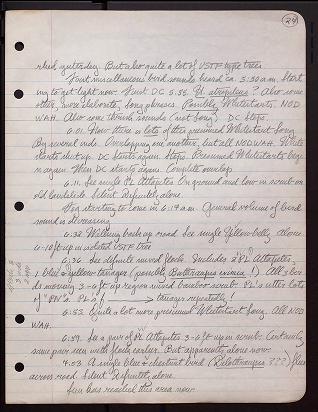 (24)
rked yesterday. But also quite a lot of VSTF type trees.
First miscellaneous bird sounds heard ca. 5:30 a.m. Start-
ing to get light now. First DC 5:56. Of atropileus? Also some
other, more elaborate, song phrases. Possibly Whitestarts. NOD
WAH. Also some thrush sounds (not song). DC Stops.
6:01. Now there is lots of this presumed Whitestart Song.
By several inds. Overlapping one another, but all NOD WAH. White-
starts shut up. DC starts again. Stops. Presumed Whitestarts begin
again. When DC starts again. Complete overlap.
6:11. See single PL Atlapetes. On ground and low in scrub on
old landslide. Silent. Definitely alone.
Fog starting to come in 6:14 a.m. General volume of bird
sound is decreasing.
6:32. Walking back up road. See single Yellow-belly. Alone.
6-10 ft up in isolated VSTF tree.
6:36. See definite mixed flock. Includes 2 PL Atlapetes,
1 blue & yellow tanager (possibly Buthraupis eximia!). All 3 birds
moving 3-6 ft up around bamboo scrub. PL's utter lots
of "PN"s. PL's f tanager repeatedly!
6:53. Quite a lot more presumed Whitestart Song. All NOD
WAH.
6:59. See a pair of PL Atlapetes 3-6 ft up in scrub. Certainly
same pair seen with flock earlier. But apparently alone now.
A single blue & chestnut bird ( ???) flies
across road. Silent. Definitely alone.
Sun has reached this area now.